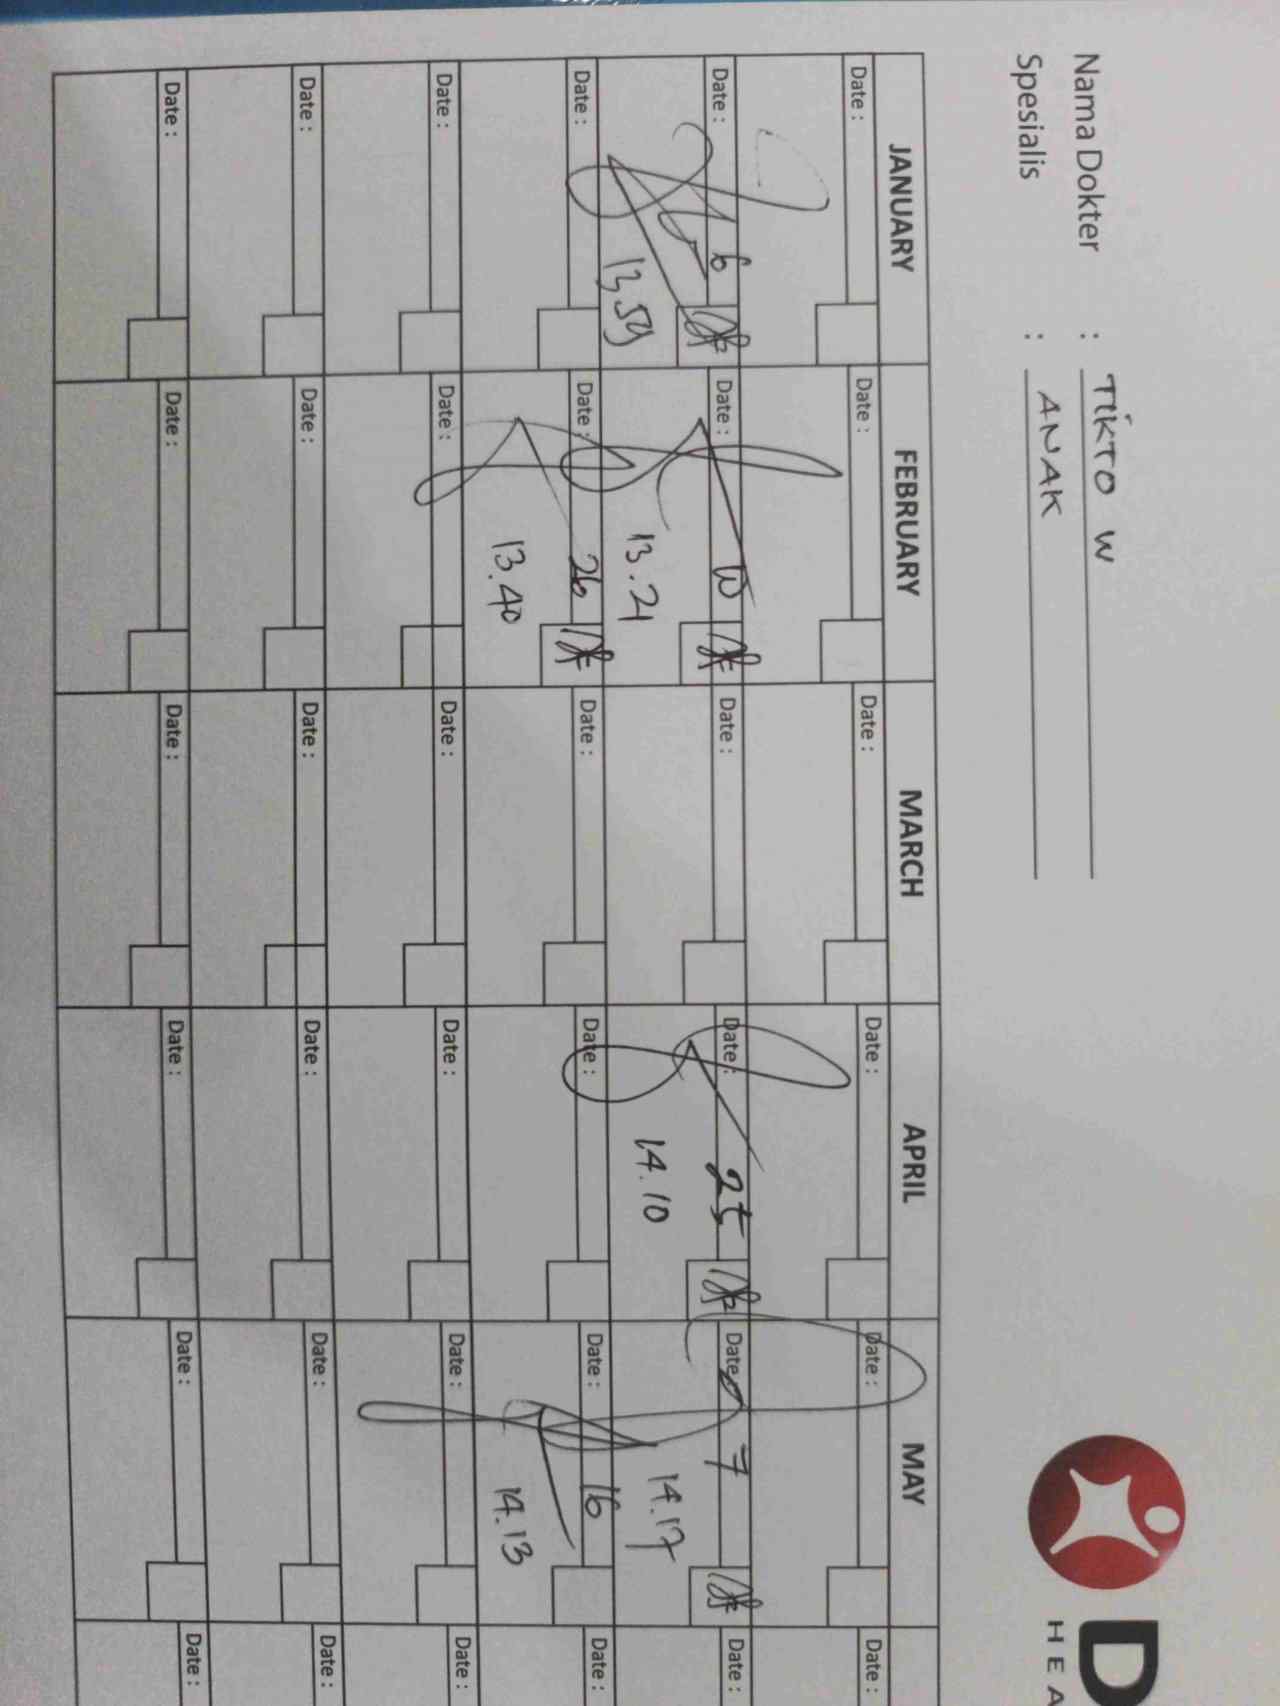 Nama Dokter : TIKTO W
Spesialis : ANAK
D
HEA
JANUARY FEBRUARY MARCH APRIL MAY
Date : Date : Date : Date : Date : Date :
Date : 6 Date : 10 Date : Date : 25 Date : 7 Date :
13.59 13.21 14.10 14.17
Date : Date : 26 Date : Date : Date : 16 Date :
13.40 14.13
Date : Date : Date : Date : Date : Date :
Date : Date : Date : Date : Date : Date :
Date : Date : Date : Date : Date : Date :